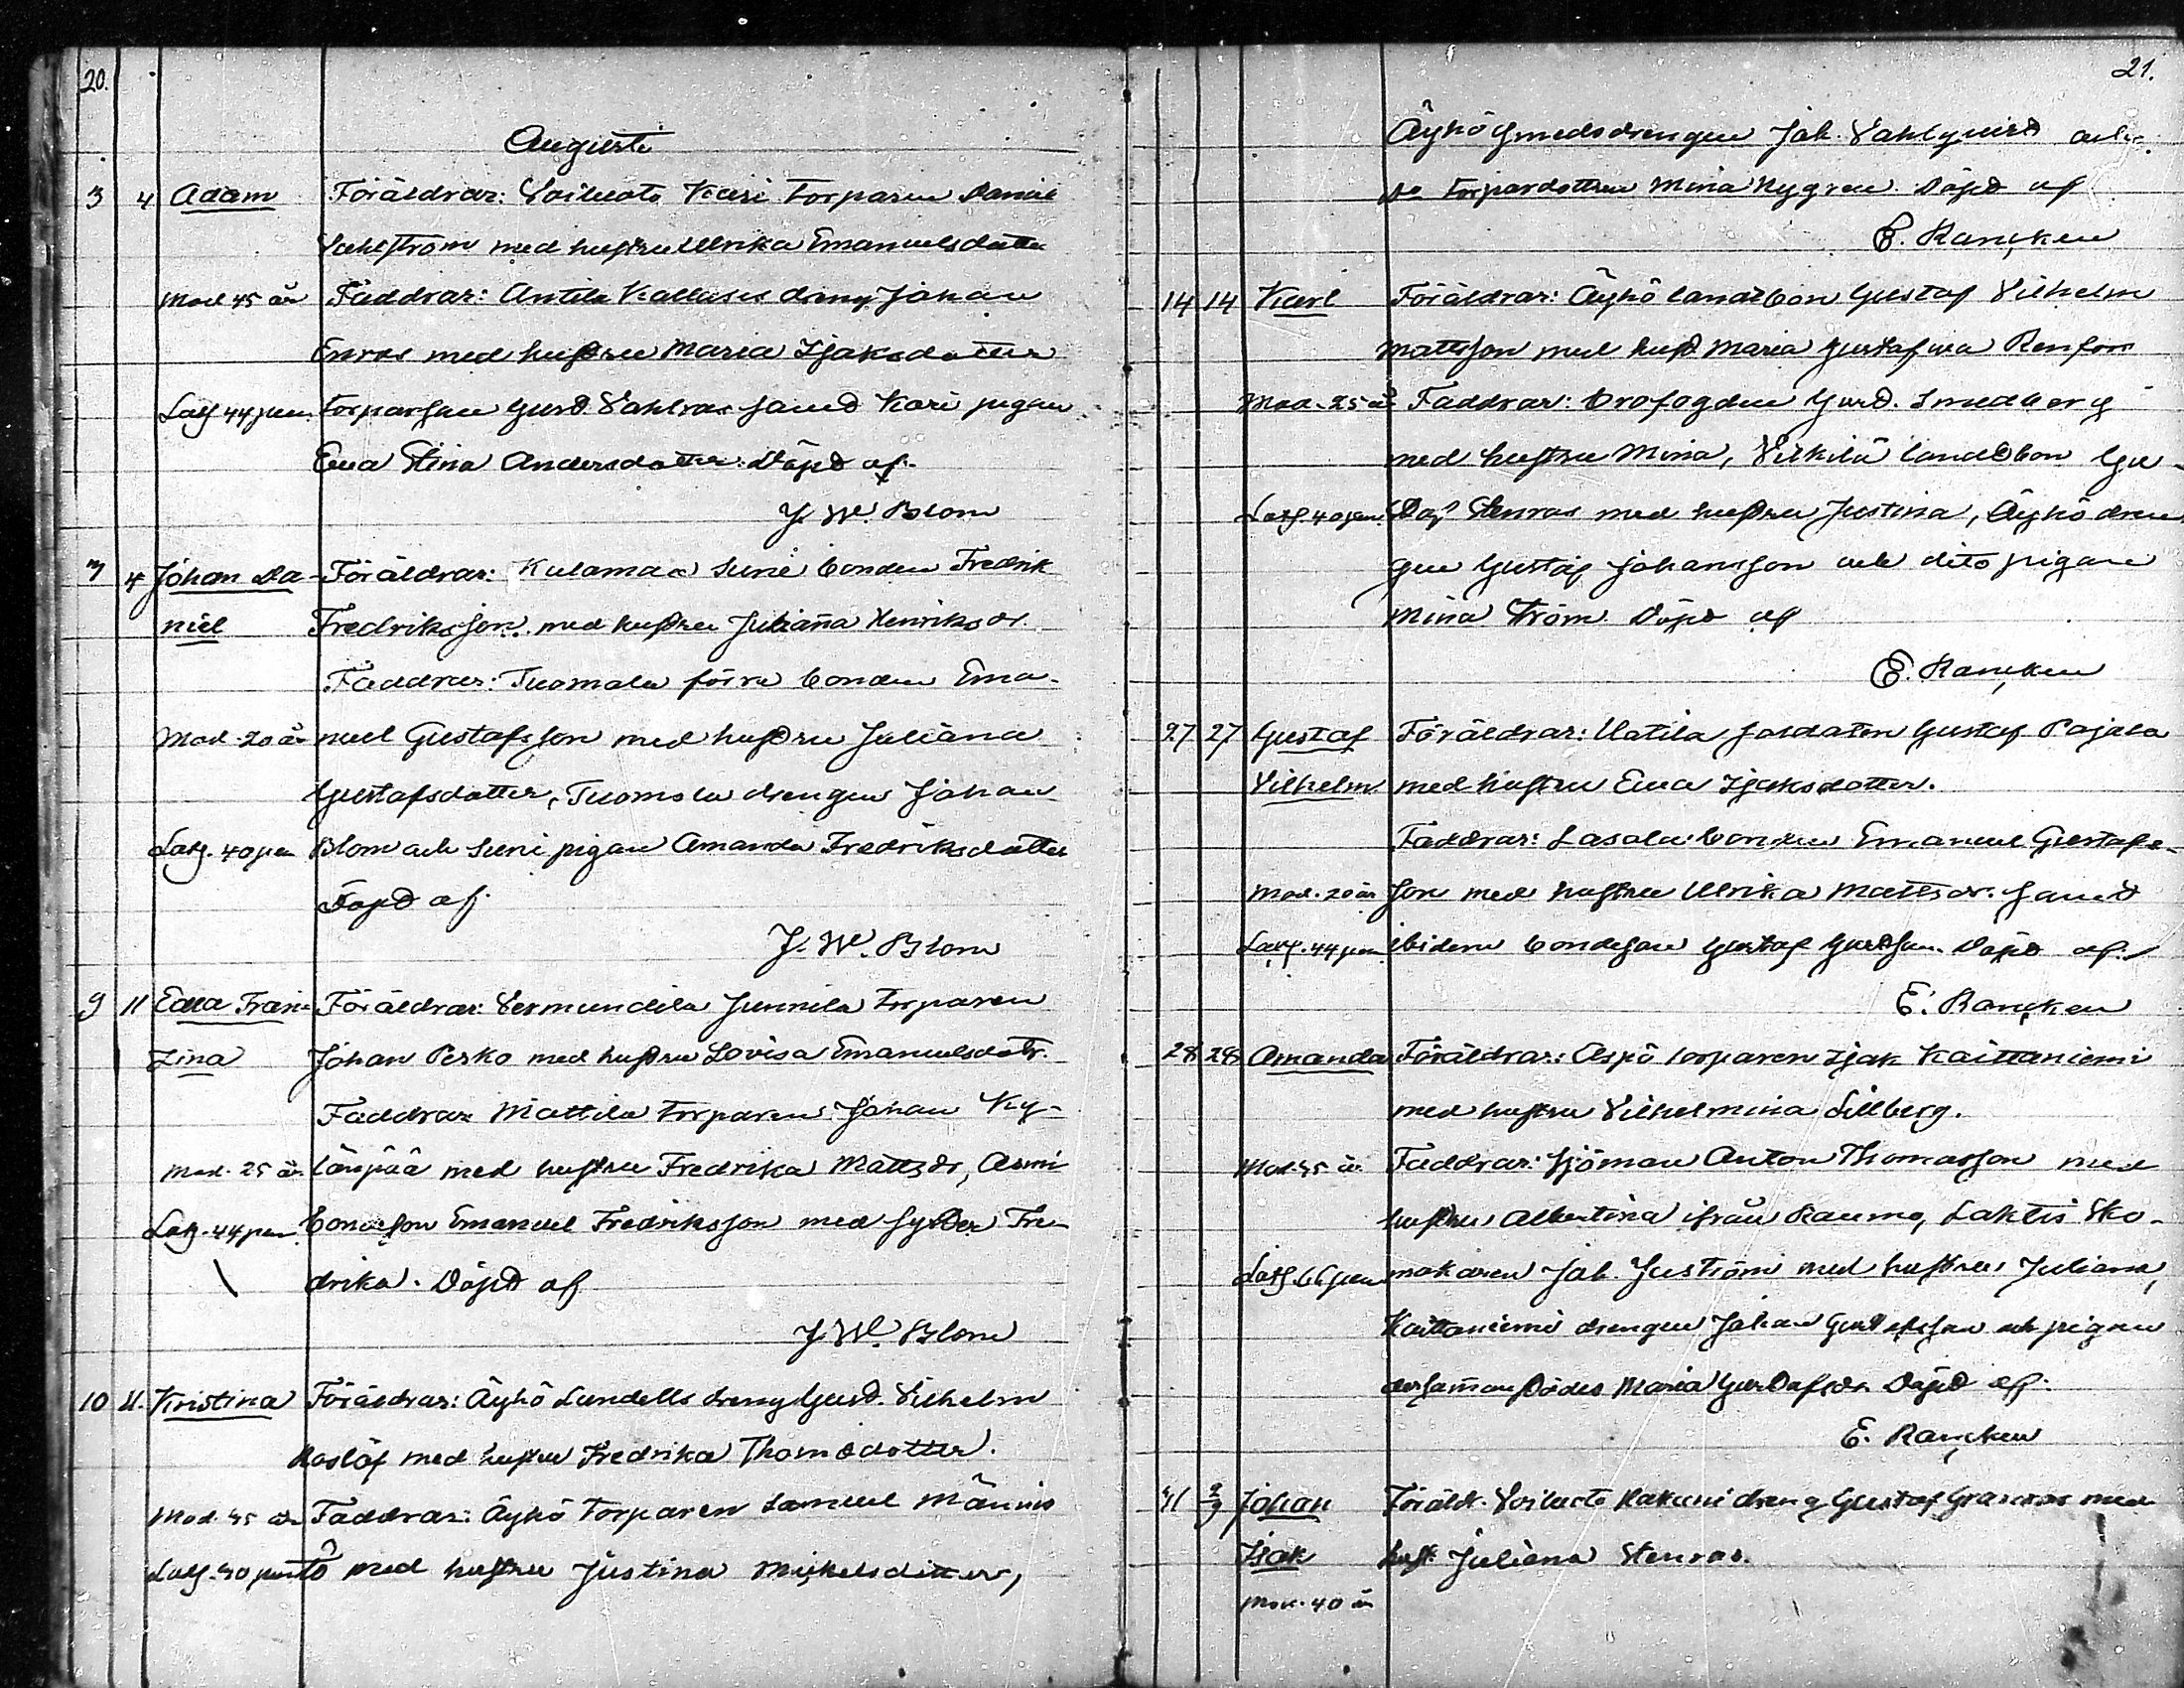 20.
Augusti
3 4 Adam Föräldrar: Voiluoto Kari torparen Daniel
Vahlström med hustru Ulrika Emanuelsdotter
Mod 45 år Faddrar: Antila Kallasis dräng Johan
Enros med hustru Maria Isaksdotter
Lösf 44 pen. torparson Gust. Vahlros samt Kari pigan
Eva Stina Andersdotter. Döpt af.
J. W. Blom
3 4 Johan Da- Föräldrar: Kulamaa Suni bonden Fredrik
niel Fredriksson med hustru Juliana Henriksdr.
Faddrar: Tuomola förra bonden Ema-
Mod. 20 år nuel Gustafsson med hustru Juliana
Gustafsdotter, Tuomola drengen Johan
Lösf. 40 pen Blom och Suni pigan Amanda Fredriksdotter
Döpt af.
J. W. Blom
9 11 Edla Fran- Föräldrar: Vermundila Junnila torparen
zina Johan Pesko med hustru Lovisa Emanuelsdotr.
Faddrar Mattila torparen Johan Ky-
Mod. 25 år länpää med hustru Fredrika Mattsdr, Asmi
Lösf. 44 pen. bondeson Emanuel Fredriksson med syster Fre-
drika. Döpt af
J. W. Blom
10 11. Kristina Föräldrar: Äyhö Lundells dreng Gust. Vilhelm
Roslöf med hustru Fredrika Thomsdotter.
Mod. 45 år Faddrar: Äyhö torparen Samuel Männis
Lösf. 40 pen tö med hustru Justina Mickelsdotter,
21.
Äyhö smedsdrengen Joh. Vahlqvist och
do torpardottren Mina Nygren. Döpt af
E. Rancken
14 14 Karl Föräldrar: Äyhö landbon Gustaf Vilhelm
Mattsson med hust Maria Gustafva Renfors
Mod. 25 år Faddrar: Brofogden Gust. Smedberg
med hustru Mina, Vilkilä landbon Gu-
Lösf. 40 pen. staf Stenros med hustru Justina, Äyhö dren
gen Gustaf Johansson och dito pigan
Mina Ström. Döpt af
E. Rancken
27 27 Gustaf Föräldrar: Uotila soldaten Gustaf Pajala
Vilhelm med hustru Eva Isaksdotter.
Faddrar: Lasola bonden Emanuel Gustafs-
Mod. 20 år son med hustru Ulrika Mattsdr. samt
Lösf. 44 pen ibidem bondeson Gustaf Gustsson. Döpt af.
E. Rancken
28 28 Amanda Föräldrar: Aspö torparen Isak Kaittaniemi
med hustru Vilhelmina Sillberg.
Mod. 45 år Faddrar: Sjöman Anton Thomasson med
hustru Albertina ifrån Raumo, Laktis Sko-
Lösf. 66 pen makaren Joh. Juström med hustru Juliana,
Kaittaniemi drengen Johan Gustafsson och pigan
dersammastädes Maria Gustafsdr. Döpt af.
E. Rancken
31 2/9 Johan Föräld. Voiluoto Rakuni dreng Gustaf Granroos med
Isak hust. Juliana Stenros.
Mod. 40 år